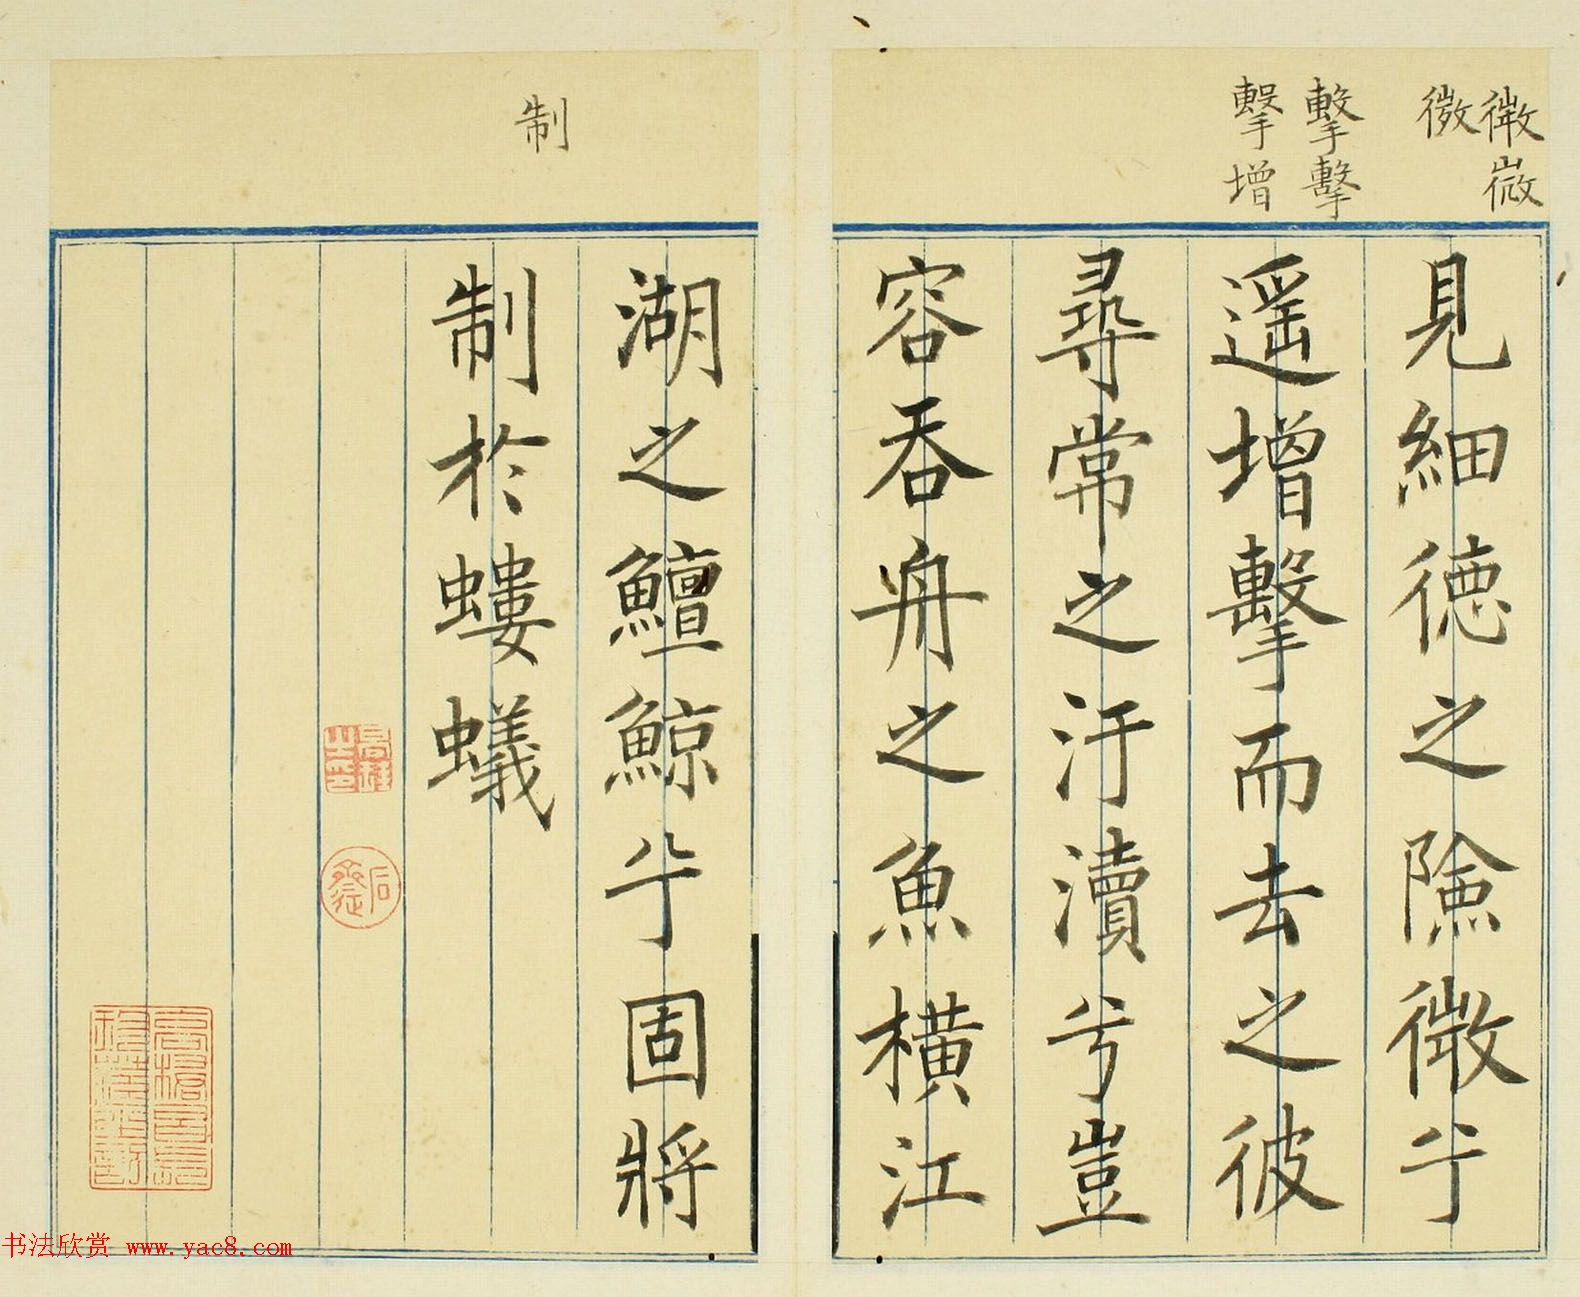 微微
微
擊擊
擊增
見細德之險微兮
遥增擊而去之彼
尋常之汙瀆兮豈
容吞舟之魚橫江
制
湖之鱣鯨兮固將
制於螻蟻
书法欣赏 www.yac8.com